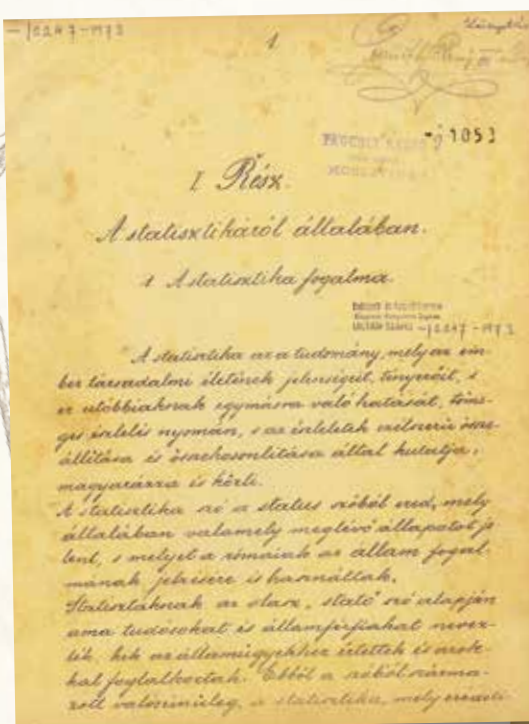 — 10247-1973
1
- 1053
I Rész.
A statisztikáról általában.
1 A statisztika fogalma.
LELTÁRI SZÁMA -10247-1973
A statisztika az a tudomány, mely az em-
ber társadalmi életének jelenségeit, tényezőit, s
ez utóbbiaknak egymásra való hatását, töme-
ges észlelés nyomán, s az észleletek célszerű össze-
állítása és összehasonlítása által kutatja,
magyarázza és közli.
A statisztika szó a status szóból ered, mely
általában valamely meglévő állapotot je-
lent, s melyet a rómaiak az állam fogal-
mának jelzésére is használtak.
Statisztáknak az olasz „stato" szó alapján
ama tudósokat és államférfiakat nevez-
ték, kik az államügyekhez értettek és azok-
kal foglalkoztak. Ebből a szóból szárma-
zott valószinüleg, a statisztika, mely eredeti